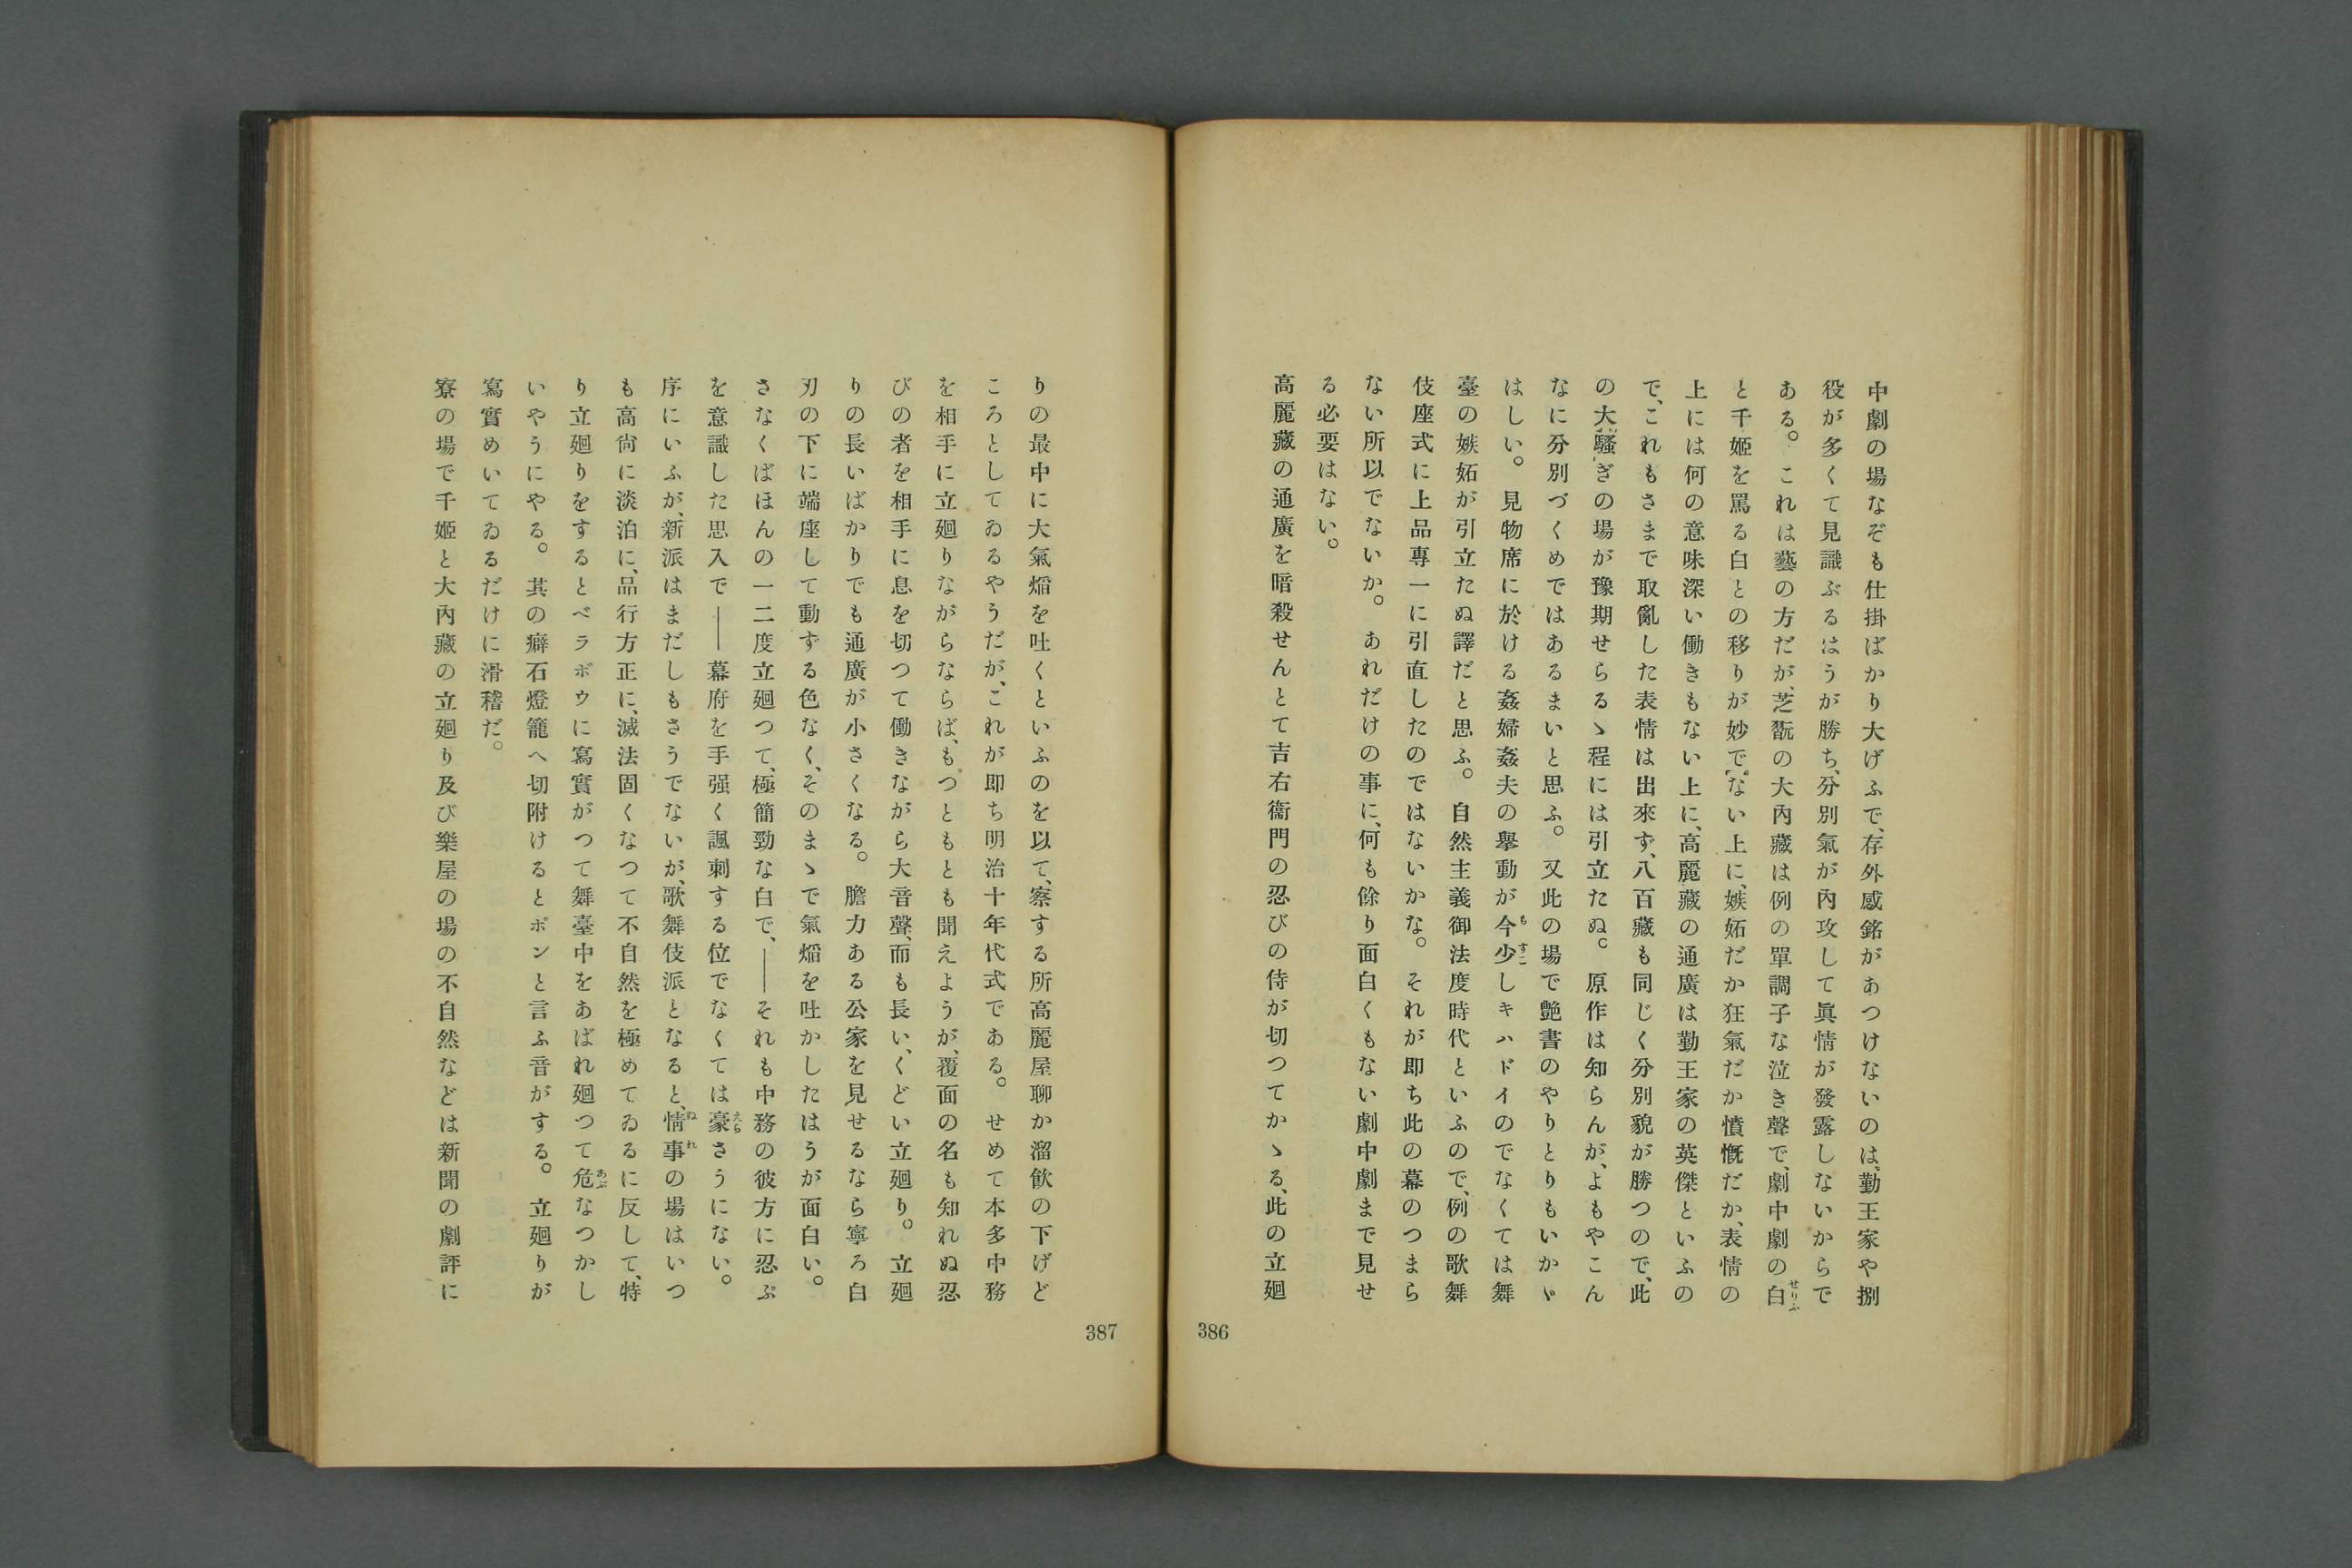 中劇の場なぞも仕掛ばかり大げふで、存外感銘があつけないのは、勤王家や捌
役が多くて見識ぶるはうが勝ち、分別氣が內攻して眞情が發露しないからで
ある。これは藝の方だが、芝翫の大內藏は例の單調子な泣き聲で、劇中劇の白
と千姬を罵る白との移りが妙でない上に、嫉妬だか狂氣だか憤慨だか、表情の
上には何の意味深い働きもない上に、高麗藏の通廣は勤王家の英傑といふの
で、これもさまで取亂した表情は出來ず、八百藏も同じく分別貌が勝つので、此
の大騷ぎの場が豫期せらるゝ程には引立たぬ。原作は知らんが、よもやこん
なに分別づくめではあるまいと思ふ。又此の場で艶書のやりとりもいかゞ
はしい。見物席に於ける姦婦姦夫の擧動が今少しキハドイのでなくては舞
臺の嫉妬が引立たぬ譯だと思ふ。自然主義御法度時代といふので、例の歌舞
伎座式に上品專一に引直したのではないかな。それが卽ち此の幕のつまら
ない所以でないか。あれだけの事に、何も餘り面白くもない劇中劇まで見せ
る必要はない。
高麗藏の通廣を暗殺せんとて吉右衞門の忍びの侍が切つてかゝる、此の立廻
386
りの最中に大氣焰を吐くといふのを以て、察する所高麗屋聊か溜飮の下げど
ころとしてゐるやうだが、これが卽ち明治十年代式である。せめて本多中務
を相手に立廻りながらならば、もつとももとも聞えようが、覆面の名も知れぬ忍
びの者を相手に息を切つて働きながら大音聲、而も長い、くどい立廻り。立廻
りの長いばかりでも通廣が小さくなる。膽力ある公家を見せるなら寧ろ白
刃の下に端座して動ずる色なく、そのまゝで氣焰を吐かしたはうが面白い。
さなくばほんの一二度立廻つて、極簡勁な白で、――それも中務の彼方に忍ぶ
を意識した思入で――幕府を手强く諷刺する位でなくては豪さうにない。
序にいふが、新派はまだしもさうでないが、歌舞伎派となると、情事の場はいつ
も高尙に淡泊に、品行方正に、滅法固くなつて不自然を極めてゐるに反して、特
り立廻りをするとベラボウに寫實がつて舞臺中をあばれ廻つて危なつかし
いやうにやる。其の癖石燈籠へ切附けるとポンと言ふ音がする。立廻りが
寫實めいてゐるだけに滑稽だ。
寮の場で千姬と大內藏の立廻り及び樂屋の場の不自然などは新聞の劇評に
387